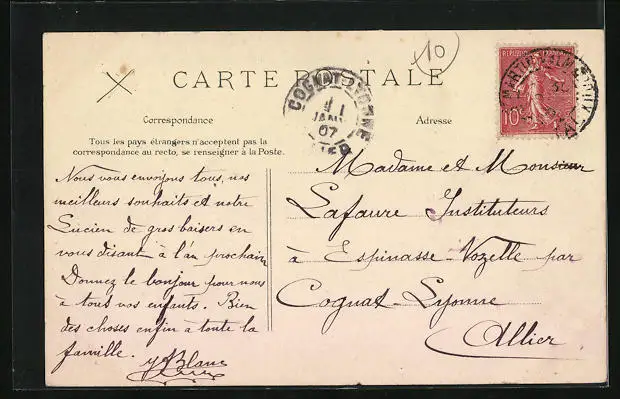 10
CARTE POSTALE
COGNAT-LYONNE
1
JANV
07
ALLIER
REPUBLIQUE FRANÇAISE
10c
Correspondance
Adresse
Tous les pays étrangers n'acceptent pas la
correspondance au recto, se renseigner à la Poste.
Nous vous envoyons tous, nos
meilleurs souhaits et notre
Lucien de gros baisers en
vous disant à l'an prochain
Donnez le bonjour pour nous
à tous vos enfants. Bien
des choses enfin à toute la
famille.
Blanc
Madame et Monsieur
Lafaure Instituteurs
à Espinasse-Vozelle par
Cognat-Lyonne
Allier